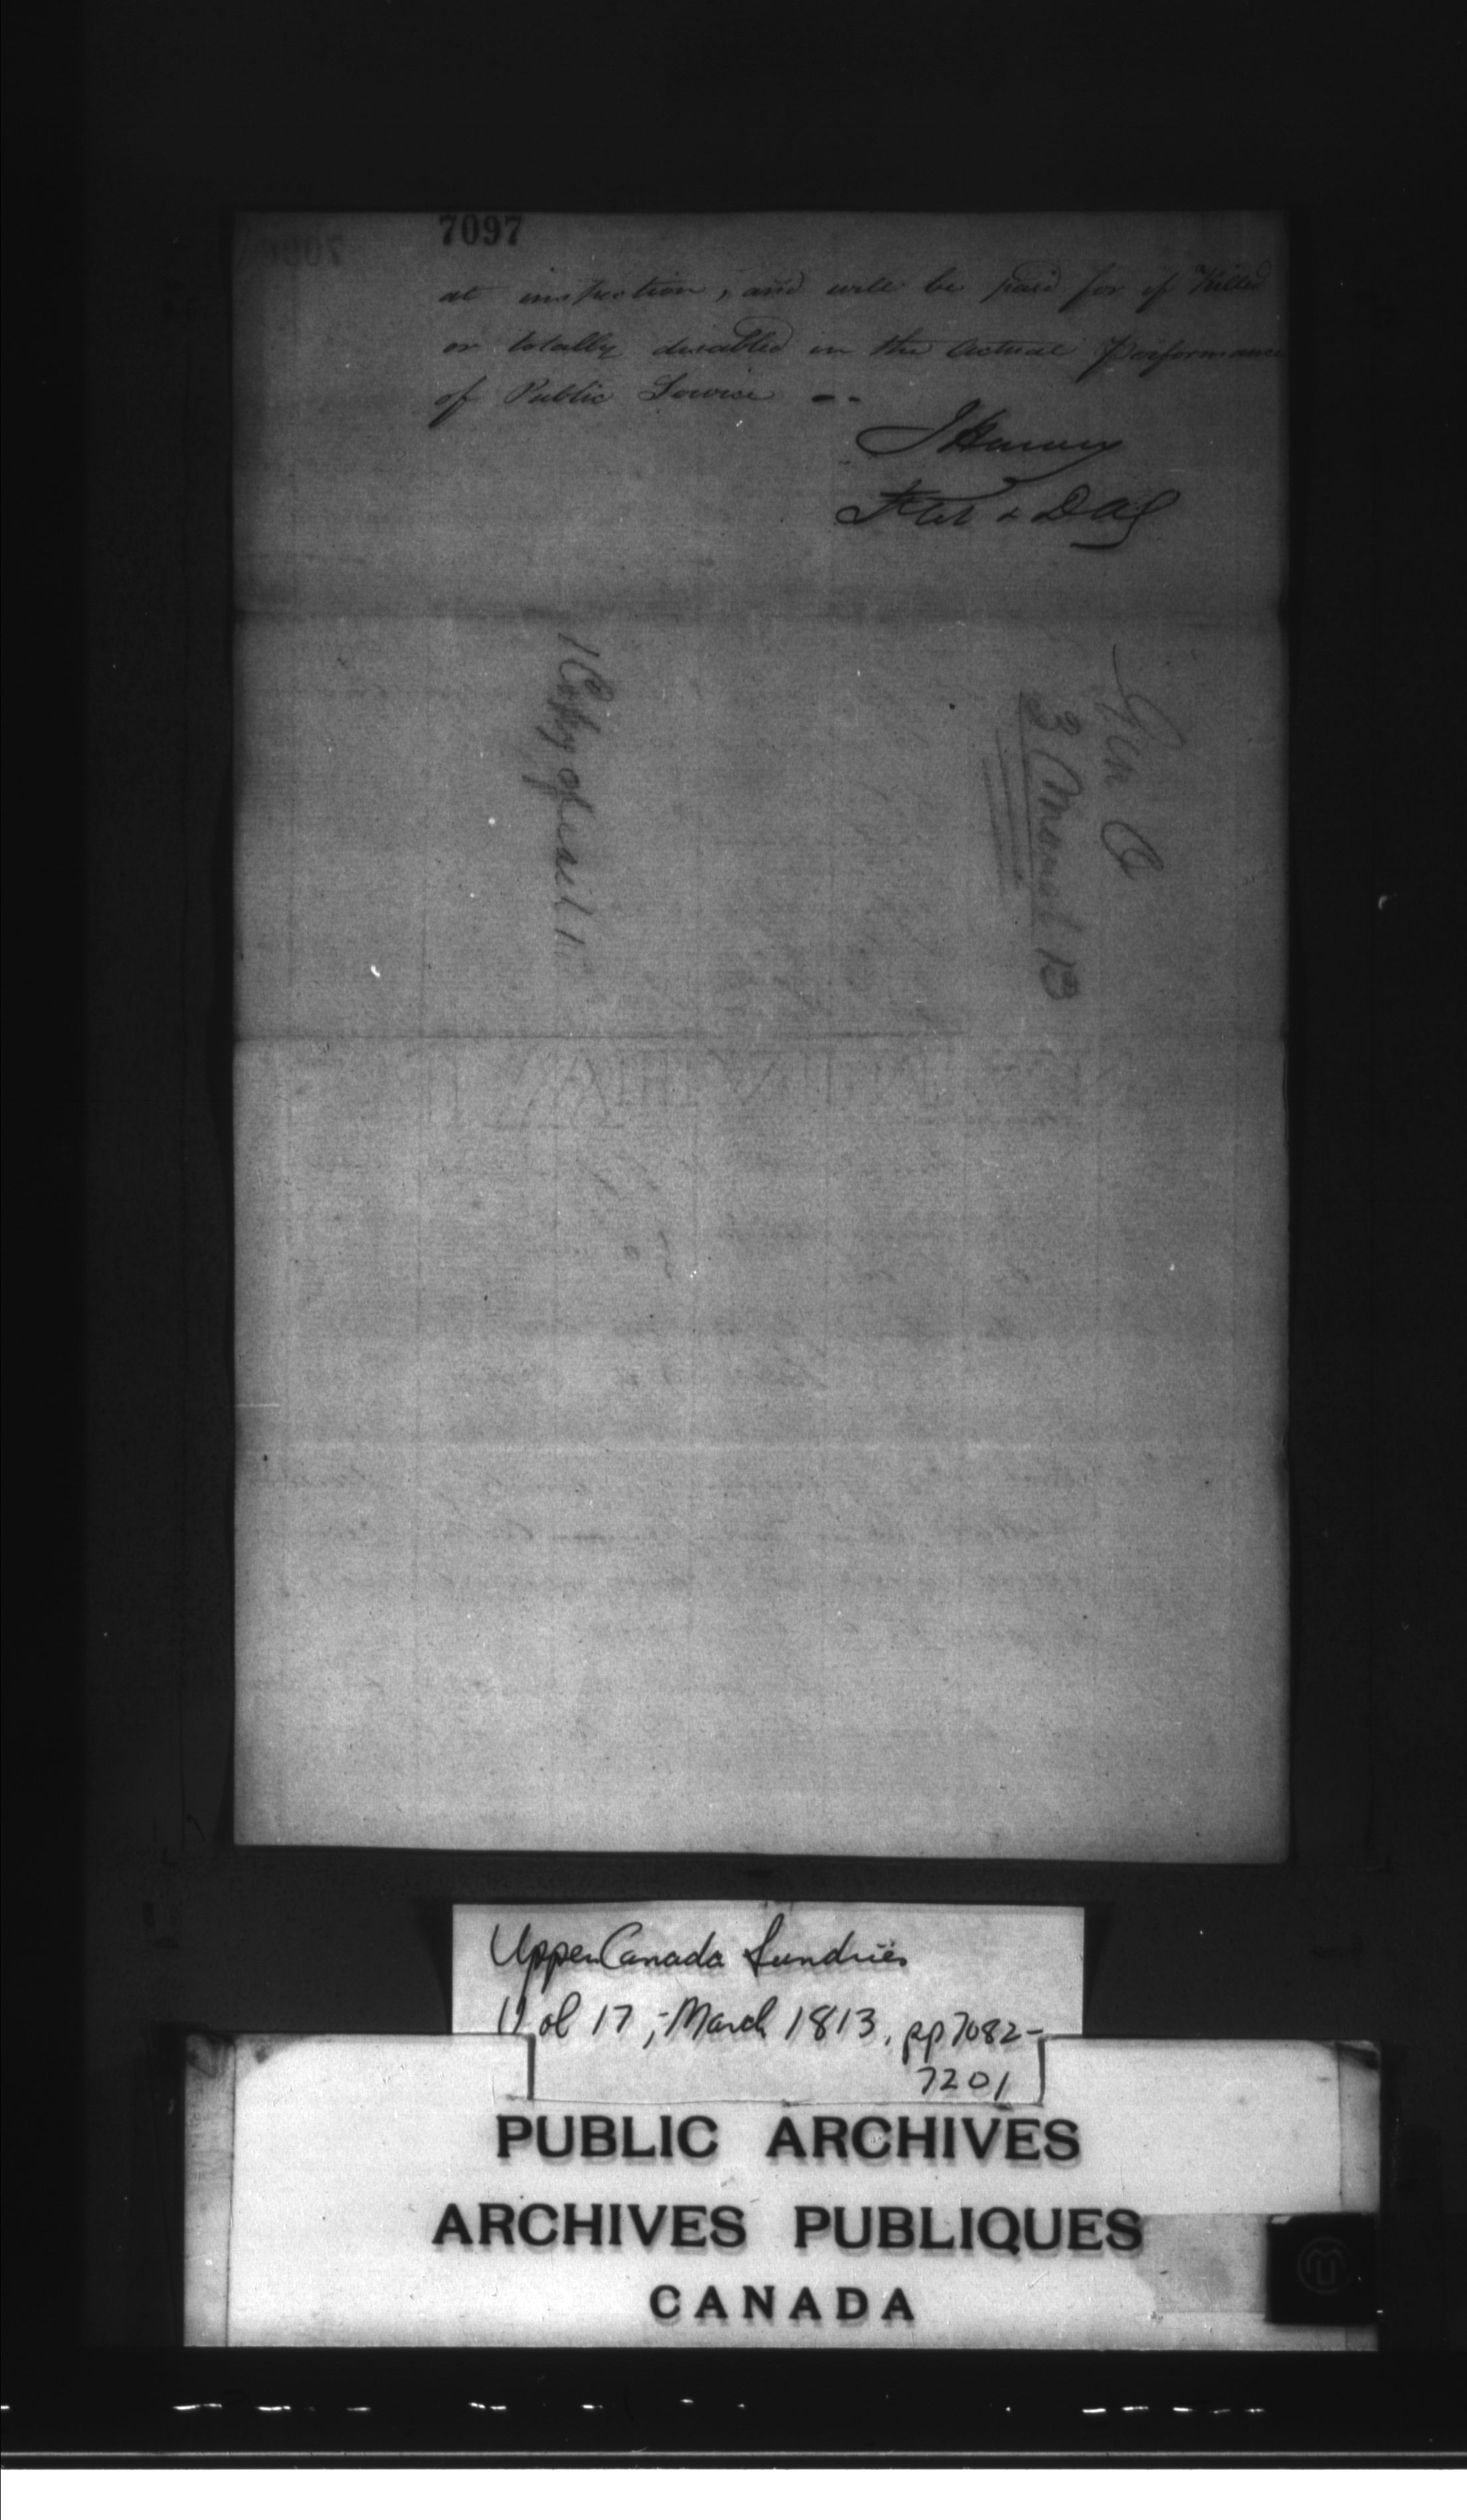 7097
at inspection, and will be paid for if Killed
or totally disabled in the Actual Performance
of Public Service --
J Harvey
Lt Col & DAG
Gen O
3 March 13
1 Copy of each
Upper Canada Sundries
Vol 17, - March 1813, pp 7082-
7201
PUBLIC ARCHIVES
ARCHIVES PUBLIQUES
CANADA